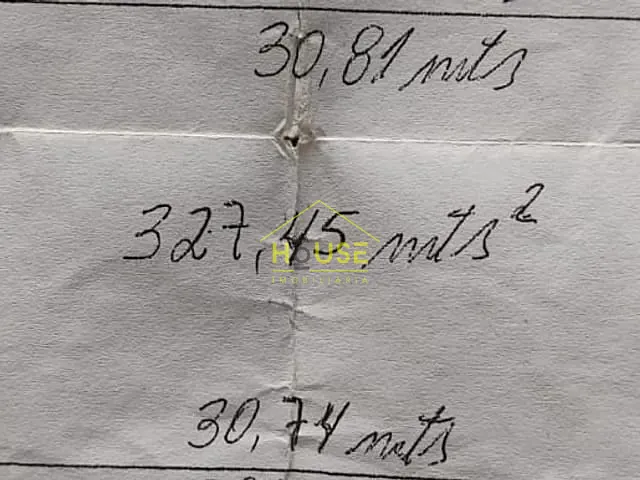 30,81 mts
327,45 mts²
HOUSE
IMOBILIÁRIA
30,74 mts